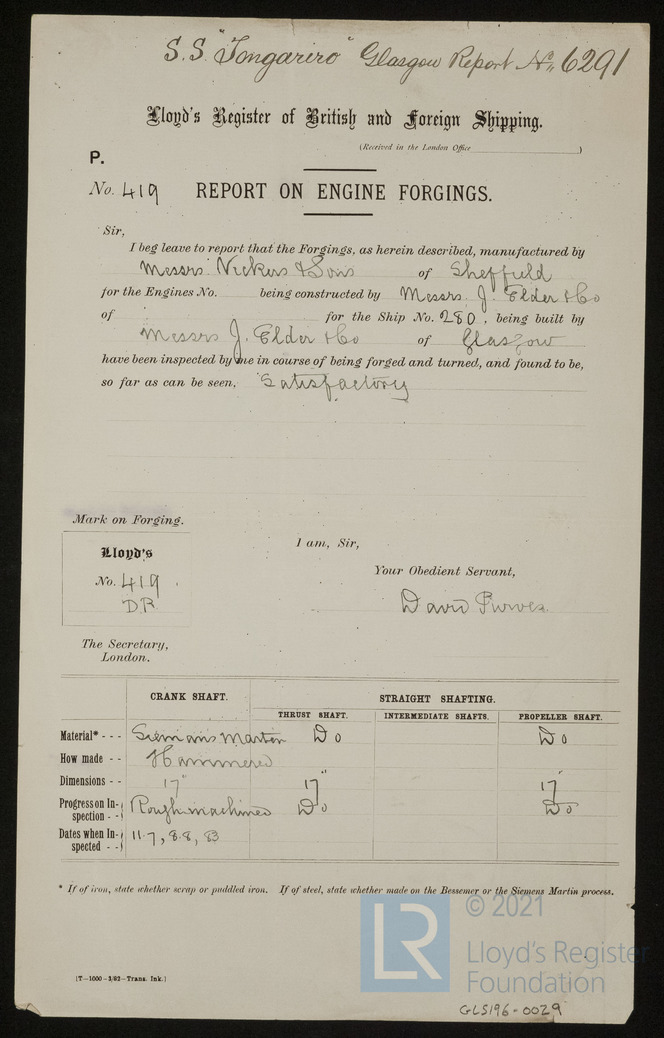 S.S. "Tongariro" Glasgow Report No. 6291
Lloyd's Register of British and Foreign Shipping.
(Received in the London Office )
P.
No. 419 REPORT ON ENGINE FORGINGS.
Sir,
I beg leave to report that the Forgings, as herein described, manufactured by
Messrs Vickers & Sons of Sheffield
for the Engines No. being constructed by Messrs. J. Elder & Co
of for the Ship No. 280, being built by
Messrs J. Elder & Co of Glasgow
have been inspected by me in course of being forged and turned, and found to be,
so far as can be seen, Satisfactory
Mark on Forging.
Lloyd's
No. 419
D.P.
I am, Sir,
Your Obedient Servant,
David Purves
The Secretary,
London.
CRANK SHAFT. STRAIGHT SHAFTING.
THRUST SHAFT. INTERMEDIATE SHAFTS. PROPELLER SHAFT.
Material* - - - Siemans Marten Do Do
How made - - Hammered
Dimensions - - 17" 17" 17"
Progress on In- Rough machined Do Do
spection - -
Dates when In- 11.7, 8.8, 83
spected - -
* If of iron, state whether scrap or puddled iron. If of steel, state whether made on the Bessemer or the Siemens Martin process.
[T—1000—2/82—Trans. Ink.]
LR
© 2021
Lloyd's Register
Foundation
GLS196-0029